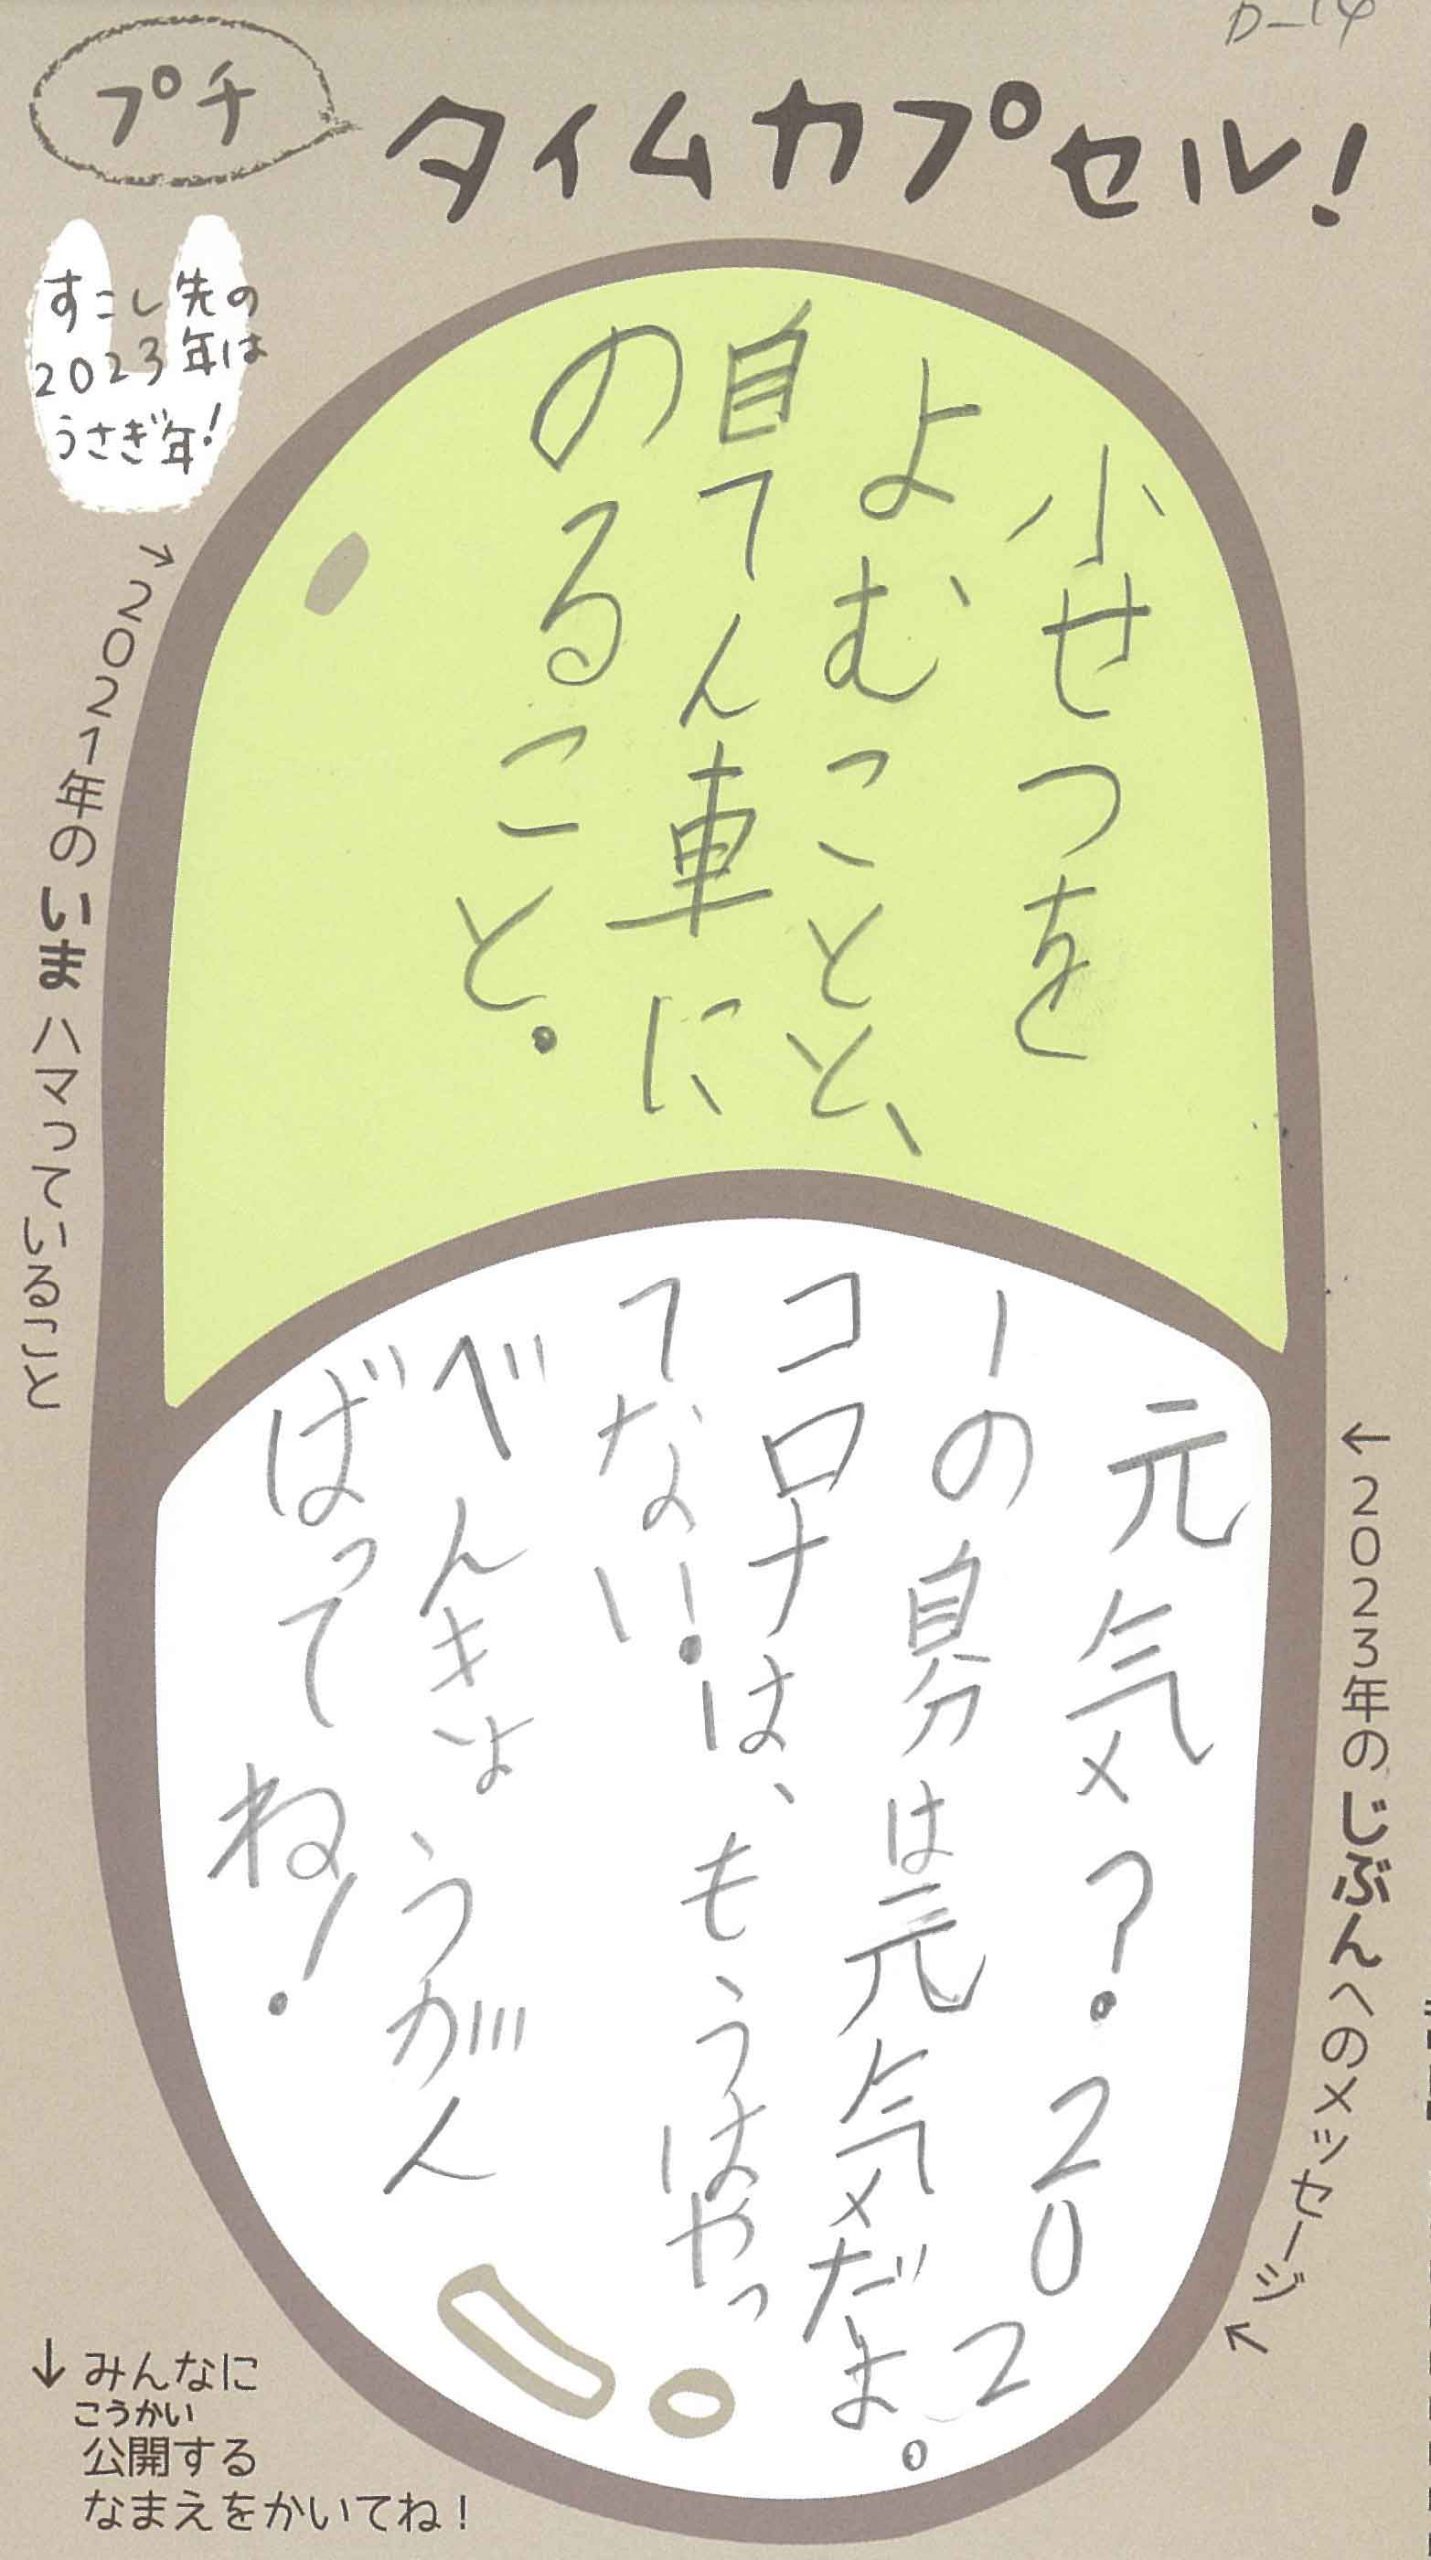 D-14
プチ
タイムカプセル！
すこし先の
2023年は
うさぎ年！
→2021年のいまハマっていること
小せつを
よむことと、
自てん車に
のること。
←2023年のじぶんへのメッセージ↖
元気？202
1の自分は元気だよ。
コロナは、もうはやっ
てない！
べんきょうがん
ばってね！
↓みんなに
こうかい
公開する
なまえをかいてね！